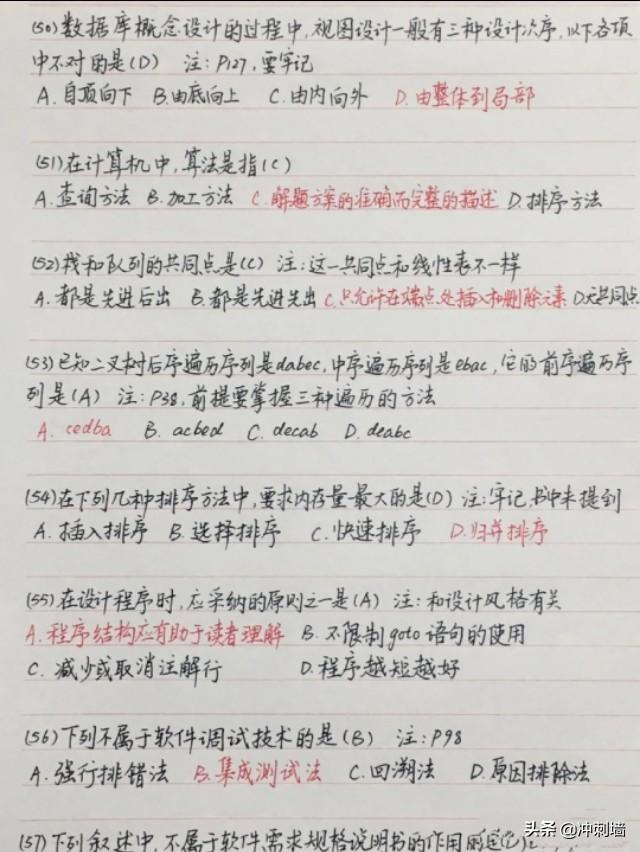 (50)数据库概念设计的过程中,视图设计一般有三种设计次序,以下各项
中不对的是(D) 注:P127,要牢记
A.自顶向下 B.由底向上 C.由内向外 D.由整体到局部
(51)在计算机中,算法是指(C)
A.查询方法 B.加工方法 C.解题方案的准确而完整的描述 D.排序方法
(52)栈和队列的共同点是(C) 注:这一共同点和线性表不一样
A.都是先进后出 B.都是先进先出 C.只允许在端点处插入和删除元素 D无共同点
(53)已知二叉树后序遍历序列是dabec,中序遍历序列是ebac,它的前序遍历序
列是(A) 注:P38,前提要掌握三种遍历的方法
A. cedba B. acbed C. decab D. deabc
(54)在下列几种排序方法中,要求内存量最大的是(D) 注:牢记,书中未提到
A.插入排序 B.选择排序 C.快速排序 D.归并排序
(55)在设计程序时,应采纳的原则之一是(A) 注:和设计风格有关
A.程序结构应有助于读者理解 B.不限制goto语句的使用
C.减少或取消注解行 D.程序越短越好
(56)下列不属于软件调试技术的是(B) 注:P98
A.强行排错法 B.集成测试法 C.回溯法 D.原因排除法
(57)下列叙述中,不属于软件需求规格说明书的作用的是
头条@冲刺墙